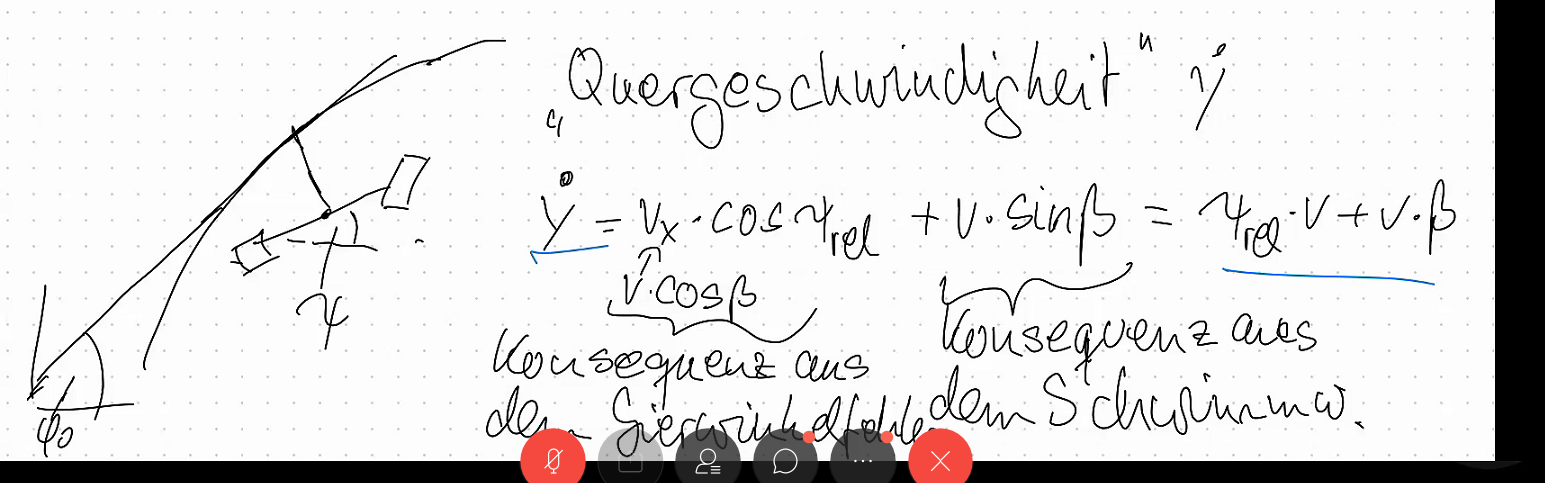 „Quergeschwindigkeit" ẏ
ẏ = vₓ · cos ψrel + v · sin β = ψrel · v + v · β
v · cos β
Konsequenz aus
dem Gierwinkelfehler
Konsequenz aus
dem Schwimmw.
ψ
φ₀